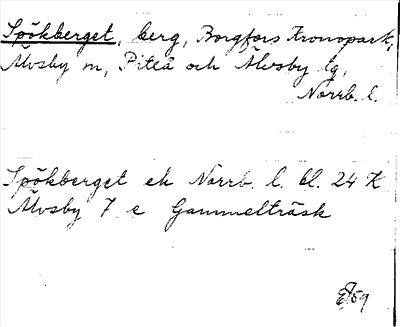 Spökberget, berg, Borgfors Kronopark,
Älvsby sn, Piteå och Älvsby tg,
Norrb. l.
Spökberget ek Norrb. l. bl. 24 K
Älvsby 7 e Gammelträsk